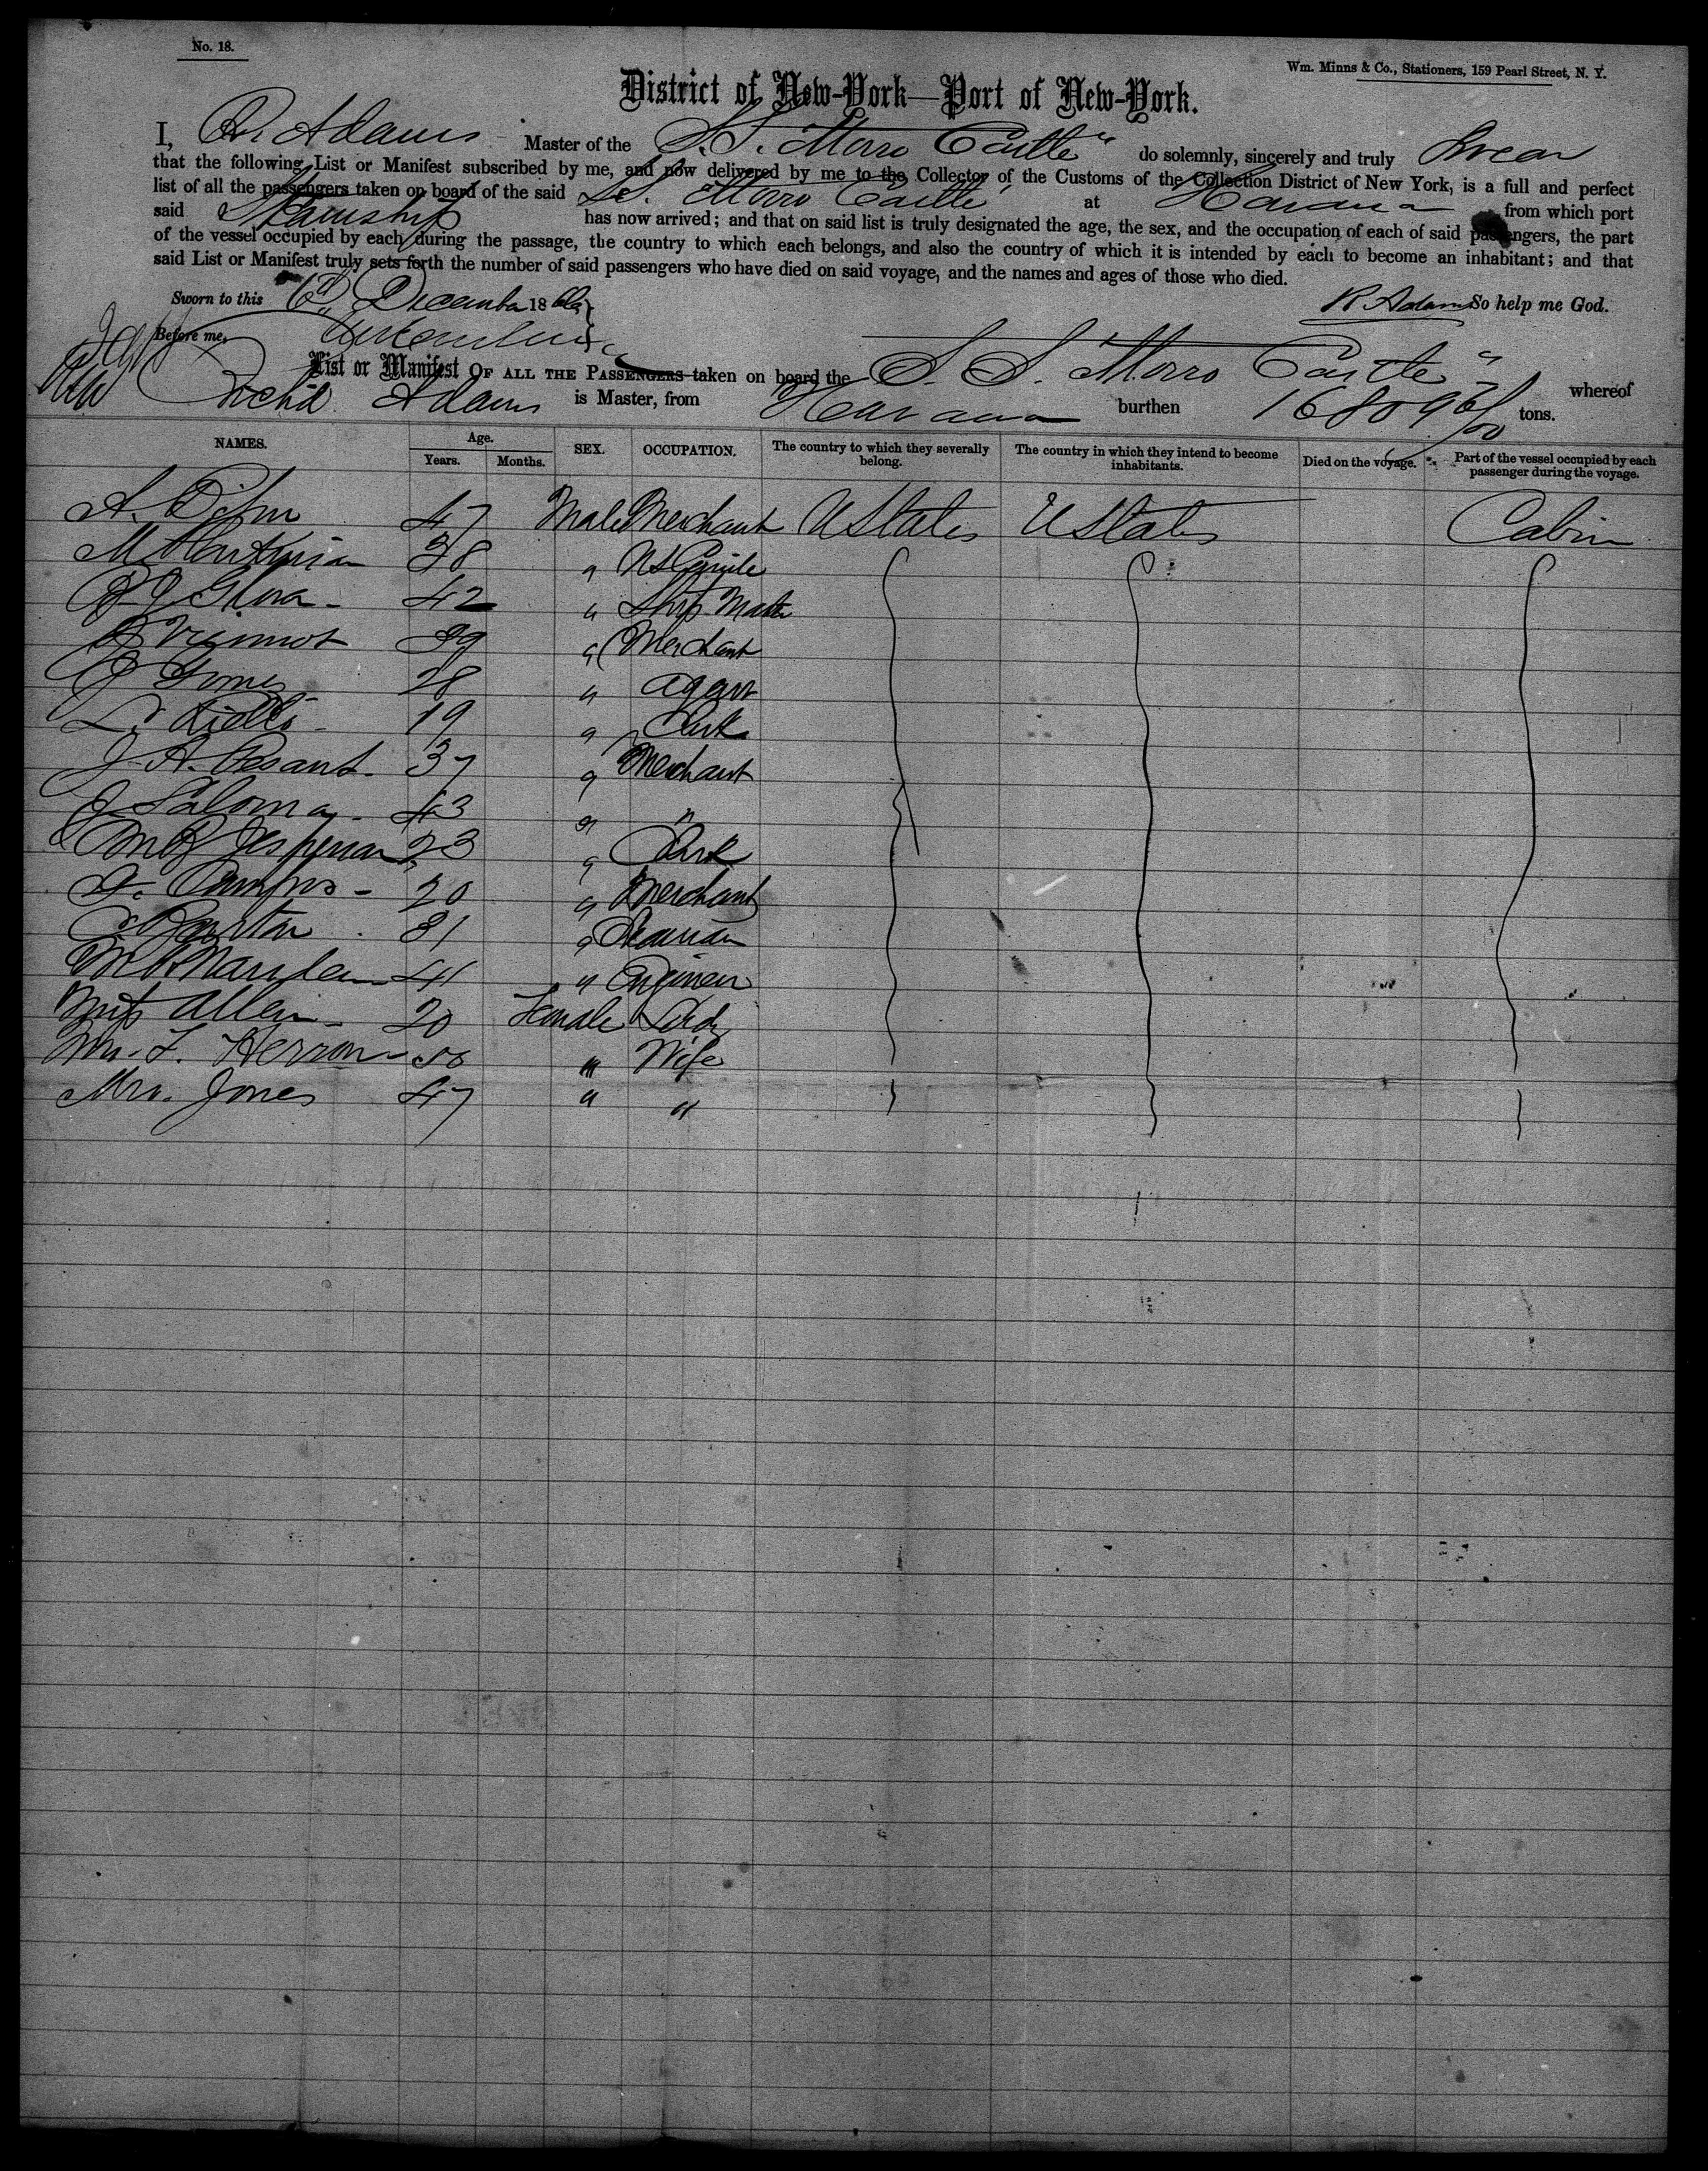 No. 18.
Wm. Minns & Co., Stationers, 159 Pearl Street, N. Y.
District of New-York—Port of New-York.
I, R. Adams Master of the S.S. "Morro Castle" do solemnly, sincerely and truly Swear
that the following List or Manifest subscribed by me, and now delivered by me to the Collector of the Customs of the Collection District of New York, is a full and perfect
list of all the passengers taken on board of the said S.S. Morro Castle at Havana from which port
said Steamship has now arrived; and that on said list is truly designated the age, the sex, and the occupation of each of said passengers, the part
of the vessel occupied by each during the passage, the country to which each belongs, and also the country of which it is intended by each to become an inhabitant; and that
said List or Manifest truly sets forth the number of said passengers who have died on said voyage, and the names and ages of those who died.
Sworn to this December 18 R. Adams So help me God.
Before me,
List or Manifest OF ALL THE PASSENGERS taken on board the "S. S. Morro Castle" whereof
Richd. Adams is Master, from Havana burthen 1680 96/100 tons.
NAMES. Age. SEX. OCCUPATION. The country to which they severally belong. The country in which they intend to become inhabitants. Died on the voyage. Part of the vessel occupied by each passenger during the voyage.
Years. Months.
A. 47 Male Merchant U States U States Cabin
M. 28 "
42 " Ship Master
39 " Merchant
Gomez 28 " Agent
L. 19 " Clerk
J. A. Pesant 37 " Merchant
J. Paloma 43 " "
Jesperson 23 " Clerk
Campos 20 " Merchant
Barton 31 " Seaman
41 " Engineer
Miss Allen 20 Female Lady
Mrs. F. Herron " Wife
Mrs. Jones 47 " "